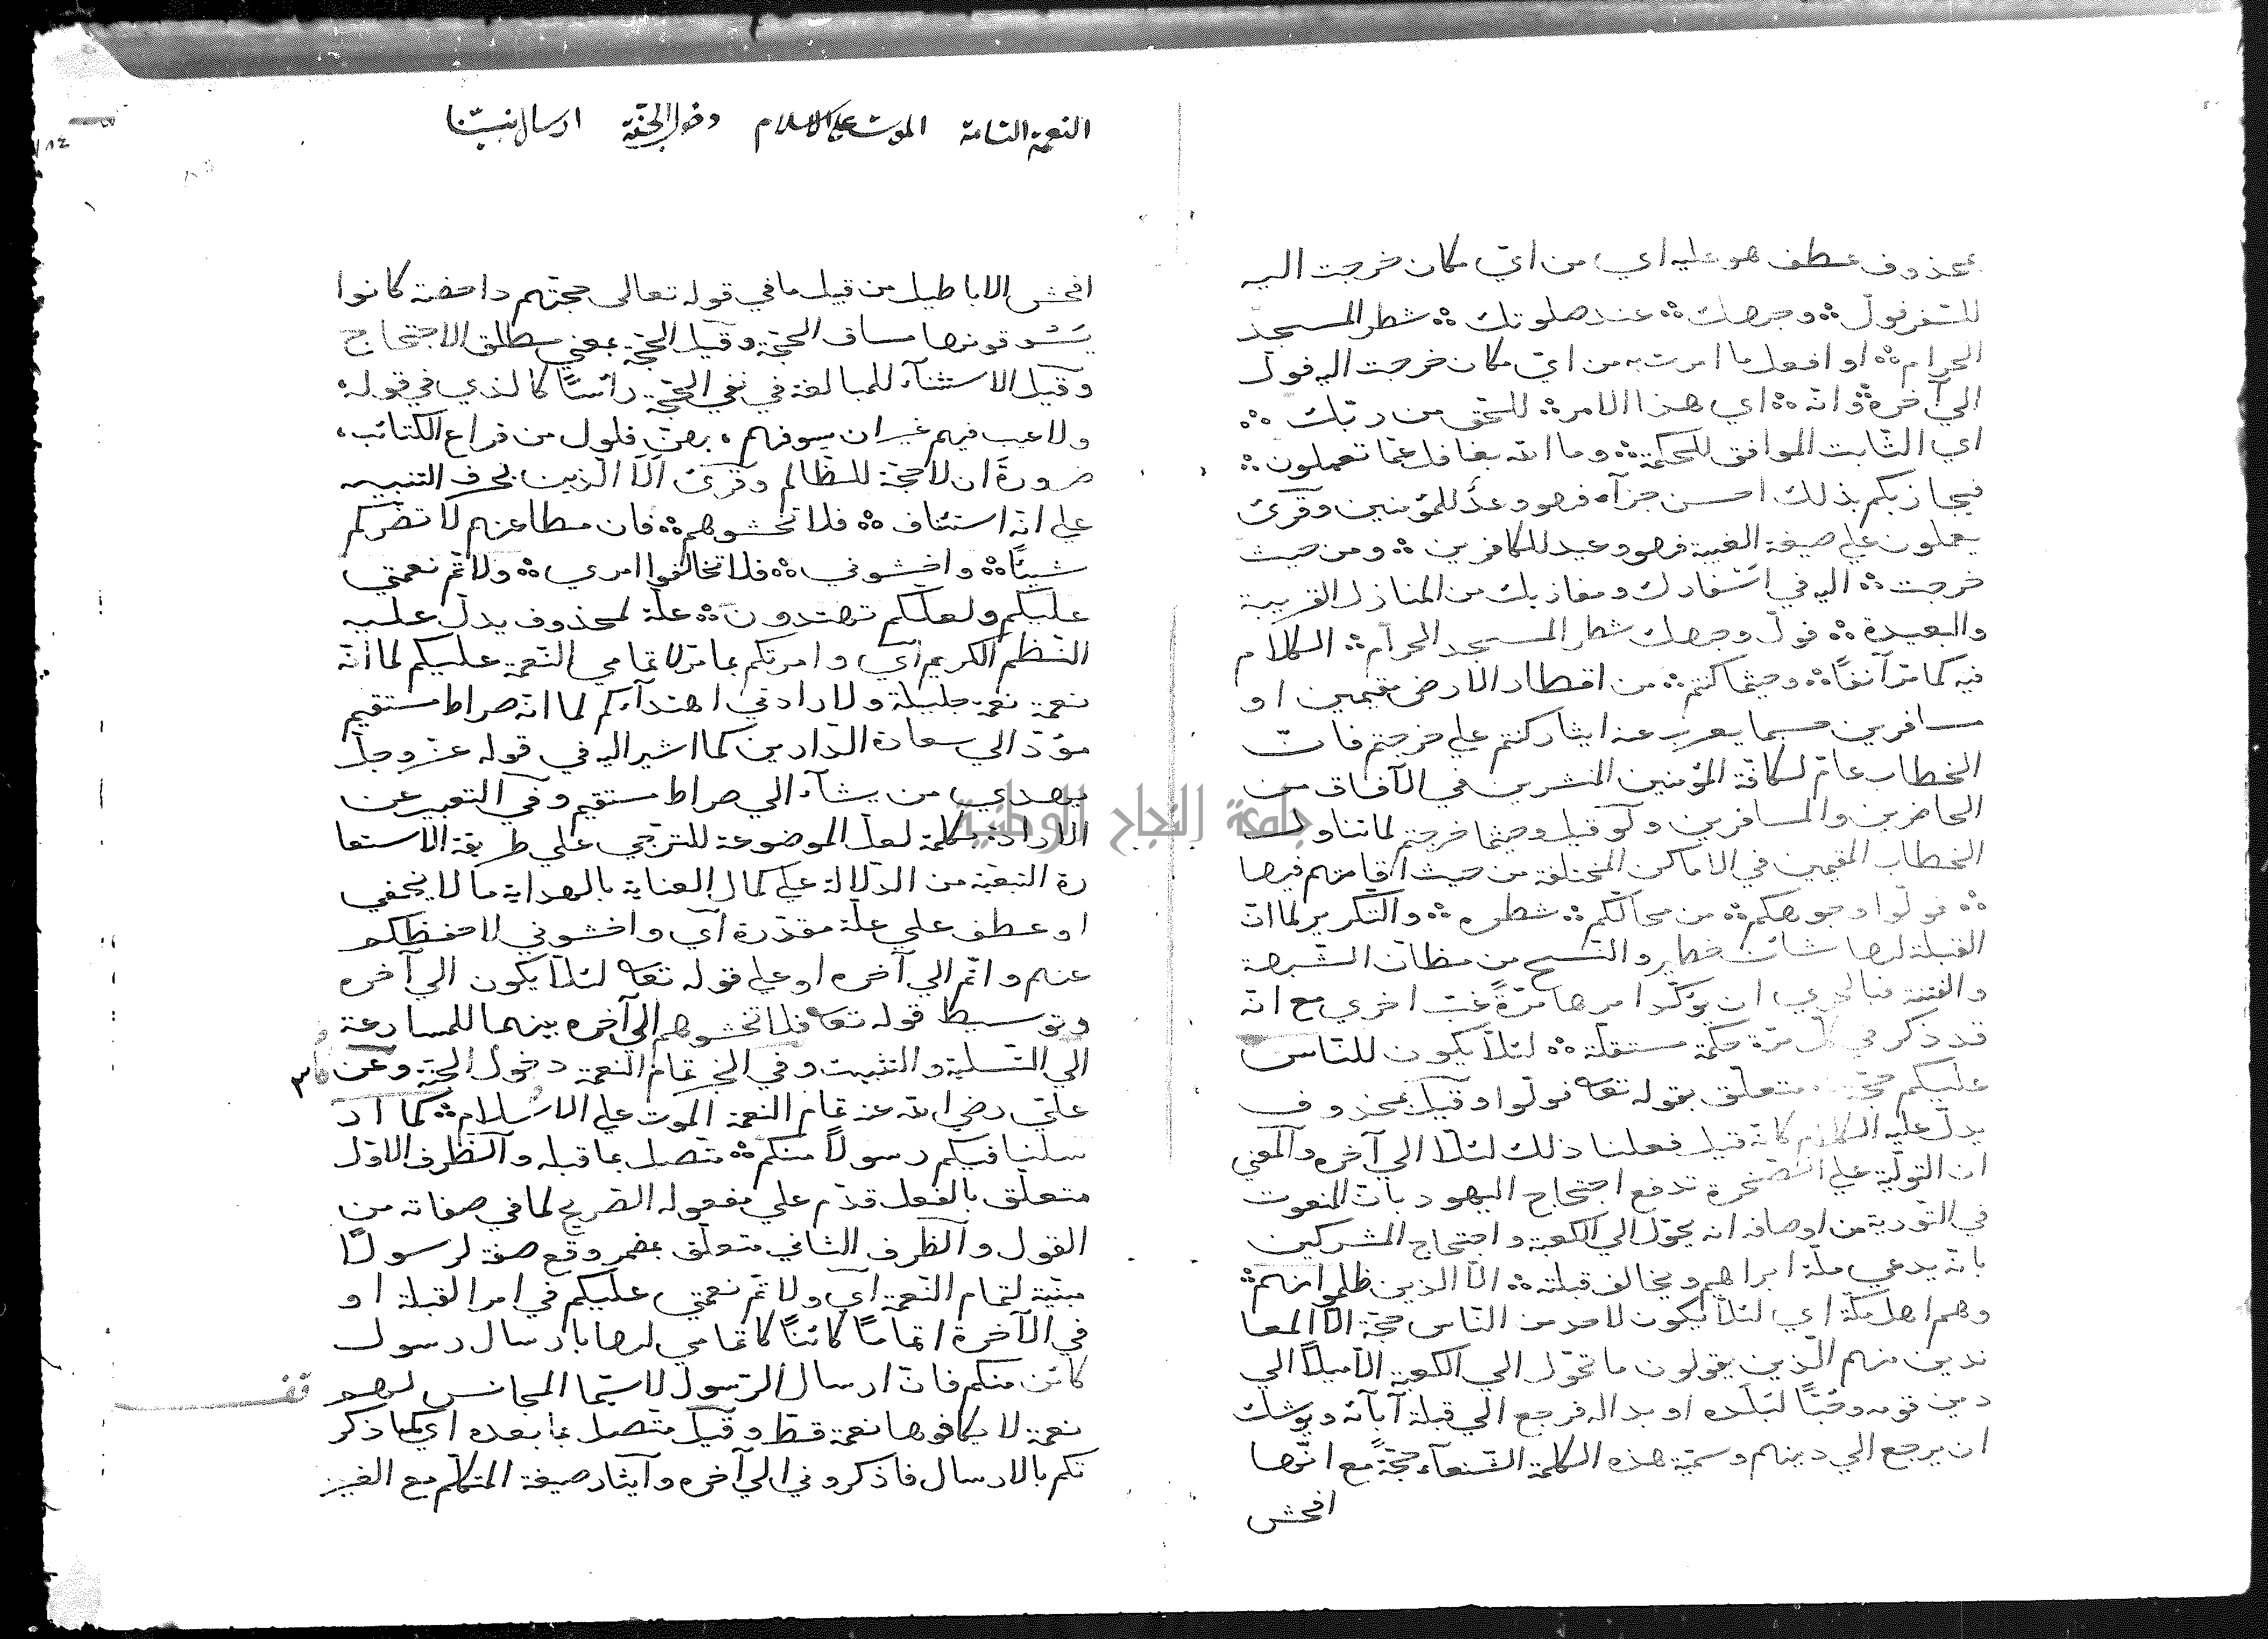 بمحذوف عطف هو عليه اي من اي مكان خرجت اليه
للسفر فول وجهك عند صلوتك شطر المسجد
الحرام او افعل ما امرت به من اي مكان خرجت اليه فول
الي آخره وانه اي هذا الامر للحق من ربك
اي الثابت الموافق للحكمة وما الله بغافل عما تعملون
فيجازيكم بذلك احسن جزآء فهو وعد للمؤمنين وقرئ
يعملون علي صيغة الغيبة فهو وعيد للكافرين ومن حيث
خرجت اليه في اسفارك ومغازيك من المنازل القريبة
والبعيدة فول وجهك شطر المسجد الحرام الكلام
فيه كما مر آنفًا وحيثما كنتم من اقطار الارض مقيمين او
مسافرين حسبما يعرب عنه ايثار كنتم علي خرجتم فان
الخطاب عام لكافة المؤمنين المنتشرين في الآفاق من
الحاضرين والمسافرين ولو قيل وحيثما خرجتم لما تناول
الخطاب المقيمين في الاماكن المختلفة من حيث اقامتهم فيها
فولوا وجوهكم من محالكم شطره والتكرير لما ان
القبلة لها شأن خطير والنسخ من مظان الشبهة
والفتنة فبالحري ان يؤكد امرها مرةً غب اخري مع انه
قد ذكر في كل مرة حكمة مستقلة لئلا يكون للناس
عليكم حجة متعلق بقوله تعا فولوا وقيل بمحذوف
يدل عليه الكلام كانه قيل فعلنا ذلك لئلا الي آخره والمعني
ان التولية علي الصخرة تدفع احتجاج اليهود بان المنعوت
في التورية من اوصافه انه يحول الي الكعبة واحتجاج المشركين
بانه يدعي ملة ابراهيم ويخالف قبلته الا الذين ظلموا منهم
وهم اهل مكة اي لئلا يكون لاحد من الناس حجة الا المعا
ندين منهم الذين يقولون ما تحول الي الكعبة الا ميلًا الي
دين قومه وحبًا لبلده او بدا له فرجع الي قبلة آبآئه ويوشك
ان يرجع الي دينهم وتسمية هذه الكلمة الشنعآء حجةً مع انها
افحش
النعمة التامة الموت علي الاسلام دخول الجنة ارسال نبينا
افحش الاباطيل من قبيل ما في قوله تعالى حجتهم داحضة كانوا
يسوقونها مساق الحجة وقيل الحجة بمعني مطلق الاحتجاج
وقيل الاستثنآء للمبالغة في نفي الحجة رأسًا كالذي في قوله
ولا عيب فيهم غير ان سيوفهم ، بهن فلول من قراع الكتائب،
ضرورة ان لا حجة للظالم وقرئ الا الذين بحرف التنبيه
علي انه استئناف فلا تخشوهم فان مطاعنهم لا تضركم
شيئًا واخشوني فلا تخالفوا امري ولاتم نعمتي
عليكم ولعلكم تهتدون علة لمحذوف يدل عليه
النظم الكريم اي وامرتكم بما مر لاتمامي النعمة عليكم لما انه
نعمة نعمة جليلة ولارادتي اهتدآءكم لما انه صراط مستقيم
مؤد الي سعادة الدارين كما اشير اليه في قوله عز وجل
يهدي من يشآء الي صراط مستقيم وفي التعبير عن
الارادة بكلمة لعل الموضوعة للترجي علي طريقة الاستعا
رة التبعية من الدلالة علي كمال العناية بالهداية ما لا يخفي
او عطف علي علة مقدرة اي واخشوني لاحفظكم
عنهم واتم الي آخره او علي قوله تعا لئلا يكون الي آخره
وتوسيط قوله تعا فلا تخشوهم الي آخره بينهما للمسارعة
الي التسلية والتثبيت وفي الخبر تمام النعمة دخول الجنة وعن
علي رضي الله عنه تمام النعمة الموت علي الاسلام كما ار
سلنا فيكم رسولًا منكم متصل بما قبله والظرف الاول
متعلق بالفعل قدم علي مفعوله الصريح لما في صفاته من
القول والظرف الثاني متعلق بمضمر وقع صفة لرسولًا
مبينة لتمام النعمة اي ولاتم نعمتي عليكم في امر القبلة او
في الآخرة اتمامًا كائنًا كاتمامي لها بارسال رسول
كائن منكم فان ارسال الرسول لا سيما المجانس لهم
قف
نعمة لا يكافوها نعمة قط وقيل متصل بما بعده اي كما ذكر
تكم بالارسال فاذكروني الي آخره وايثار صيغة المتكلم مع الغير
جامعة النجاح الوطنية